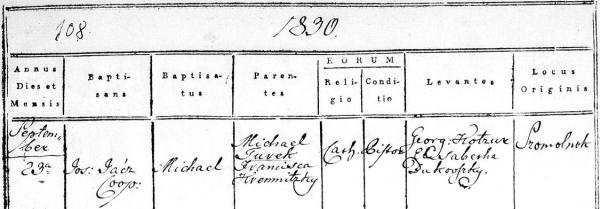 108.
1830.
Annus Dies et Mensis
Baptisans
Baptisatus
Parentes
EORUM
Religio
Conditio
Levantes
Locus Originis
Septem-
ber
29a
Jos: Jáčz
Coop:
Michael
Michael
Turek
Francisca
Kremnitzky
Cath.
Pistor
Georg: Kotzur
Elisabetha
Dukovszky.
Szomolnok